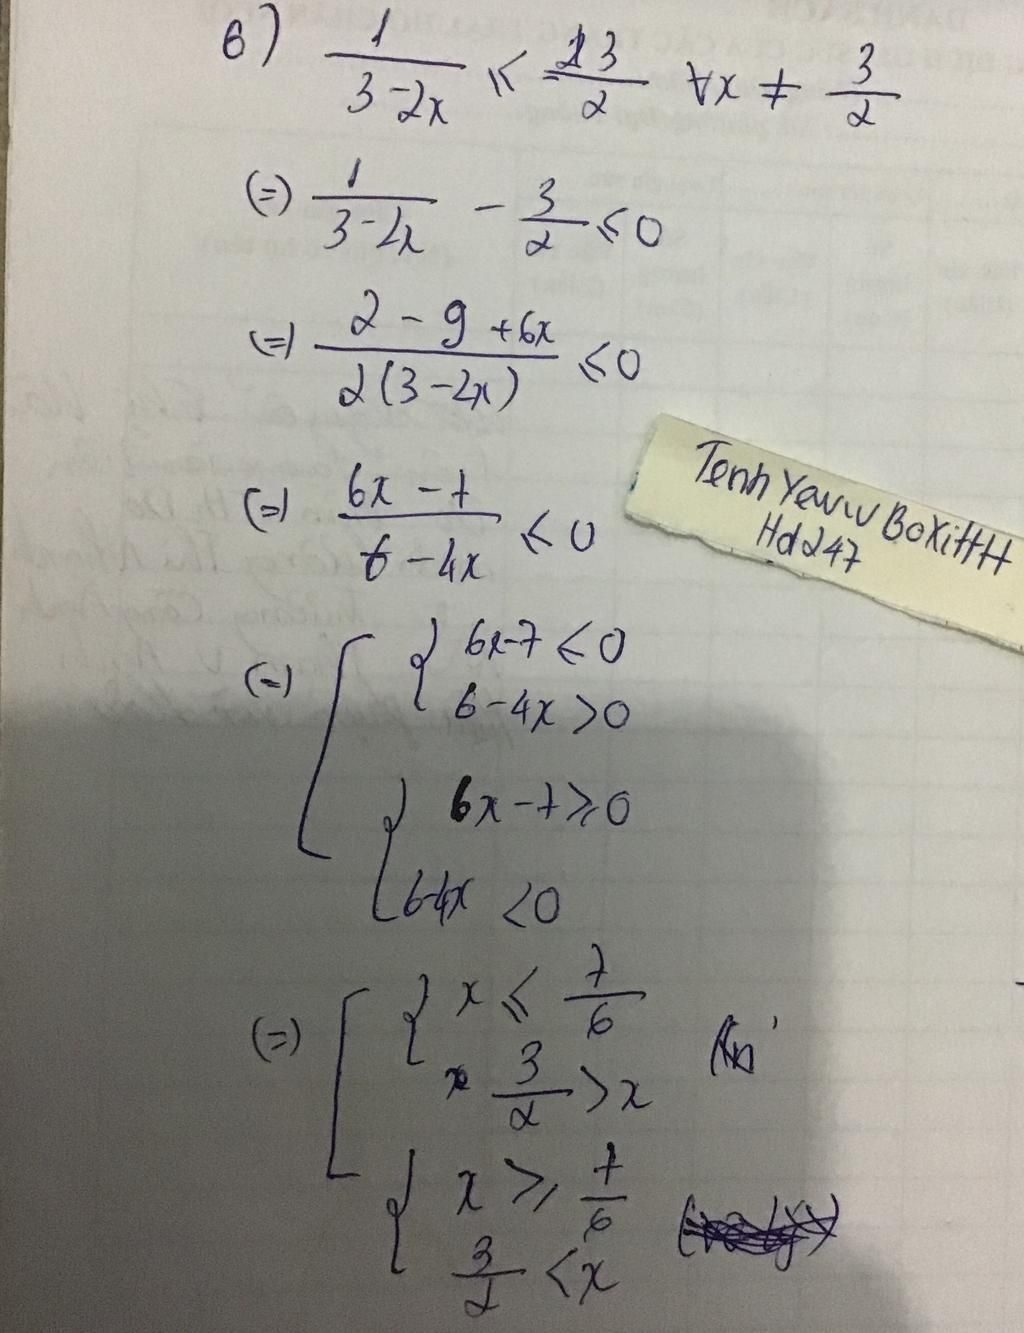 b) 1/(3-2x) ≤ 3/2 ∀x ≠ 3/2
(=) 1/(3-2x) - 3/2 ≤ 0
(=) (2 - 9 + 6x)/(2(3-2x)) ≤ 0
(=) (6x - 7)/(6 - 4x) ≤ 0
TenhYeuw BoXiHH
Hd247
(=) [ { 6x-7 ≤ 0
6-4x > 0
{ 6x-7 ≥ 0
6-4x < 0
(=) [ { x ≤ 7/6
3/2 > x
{ x ≥ 7/6
3/2 < x